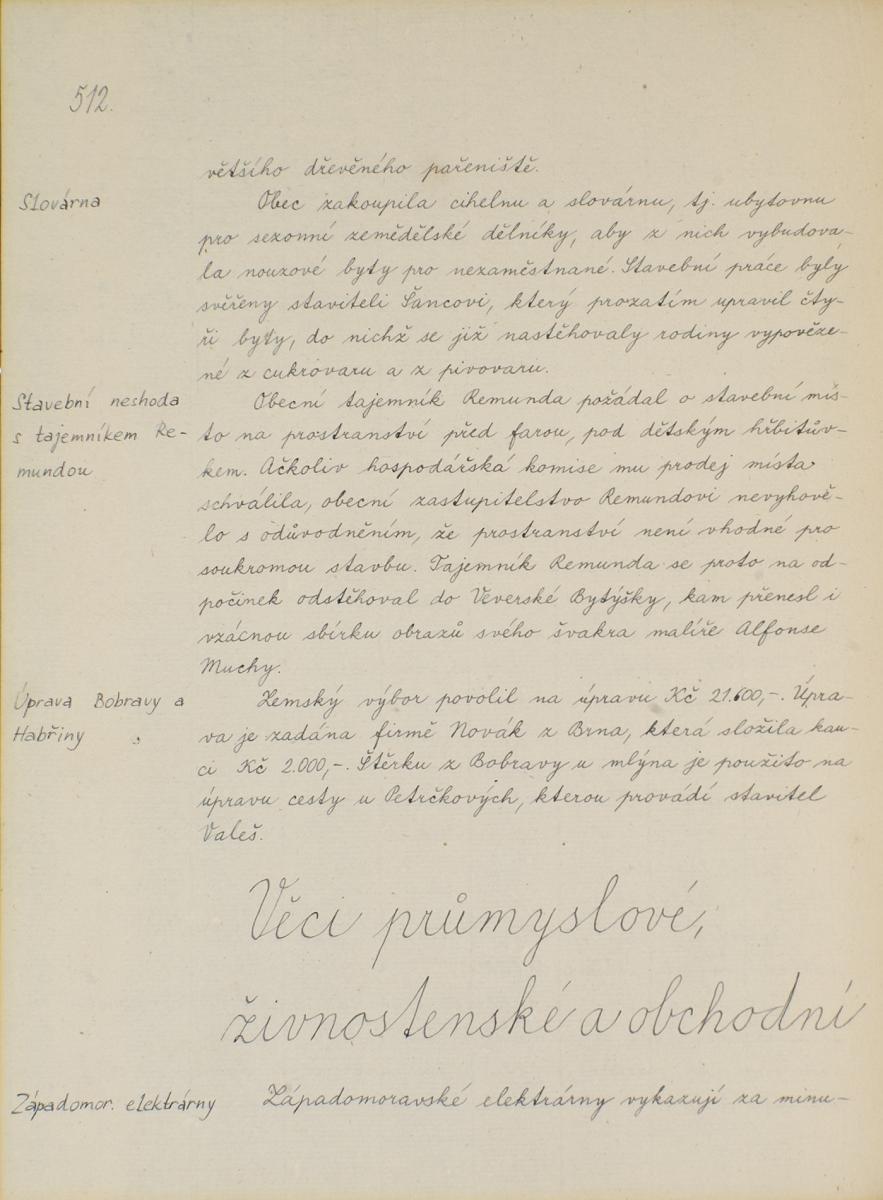 512.
většího dřevěného pařeniště.
Slovárna
Obec zakoupila cihelnu a slovárnu, tj. ubytovnu
pro sezonní zemědělské dělníky, aby z nich vybudova-
la nouzové byty pro nezaměstnané. Stavební práce byly
svěřeny staviteli Šancovi, který prozatím upravil čty-
ři byty, do nichž se již nastěhovaly rodiny vypověze-
né z cukrovaru a z pivovaru.
Stavební neshoda
s tajemníkem Re-
mundou
Obecní tajemník Remunda požádal o stavební mís-
to na prostranství před farou, pod dětským hřbitův-
kem. Ačkoliv hospodářská komise mu prodej místa
schválila, obecní zastupitelstvo Remundovi nevyhově-
lo s odůvodněním, že prostranství není vhodné pro
soukromou stavbu. Tajemník Remunda se proto na od-
počinek odstěhoval do Veverské Bytýšky, kam přenesl i
vzácnou sbírku obrazů svého švakra malíře Alfonse
Muchy.
Úprava Bobravy a
Habřiny
Zemský výbor povolil na úpravu Kč 21.600,-. Úpra-
va je zadána firmě Novák z Brna, která složila kau-
ci Kč 2.000,-. Štěrku z Bobravy u mlýna je použito na
úpravu cesty u Petrčkových, kterou provádí stavitel
Valeš.
Věci průmyslové,
živnostenské a obchodní
Západomor. elektrárny
Západomoravské elektrárny vykazují za minu-